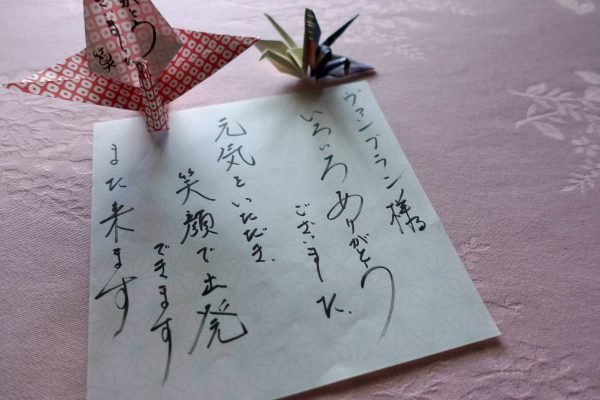 ヴァンブラン様
いろいろありがとう
ございました.
元気をいただき、
笑顔で出発
できます
また来ます
ございました